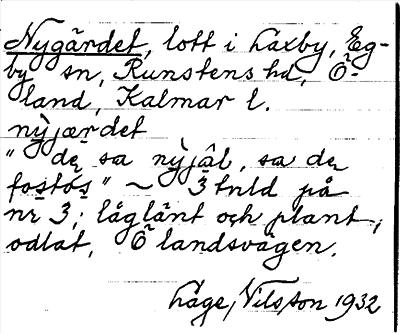 Nygärdet, lott i Laxby, Eg-
by sn, Runstens hd, Ö-
land, Kalmar l.
nỳjærdet
"de sa nỳjâl, sa de
fostøs" ~ 3 tnld på
nr 3; låglänt och plant,
odlat, Ö landsvägen.
Låge, Nilsson 1932